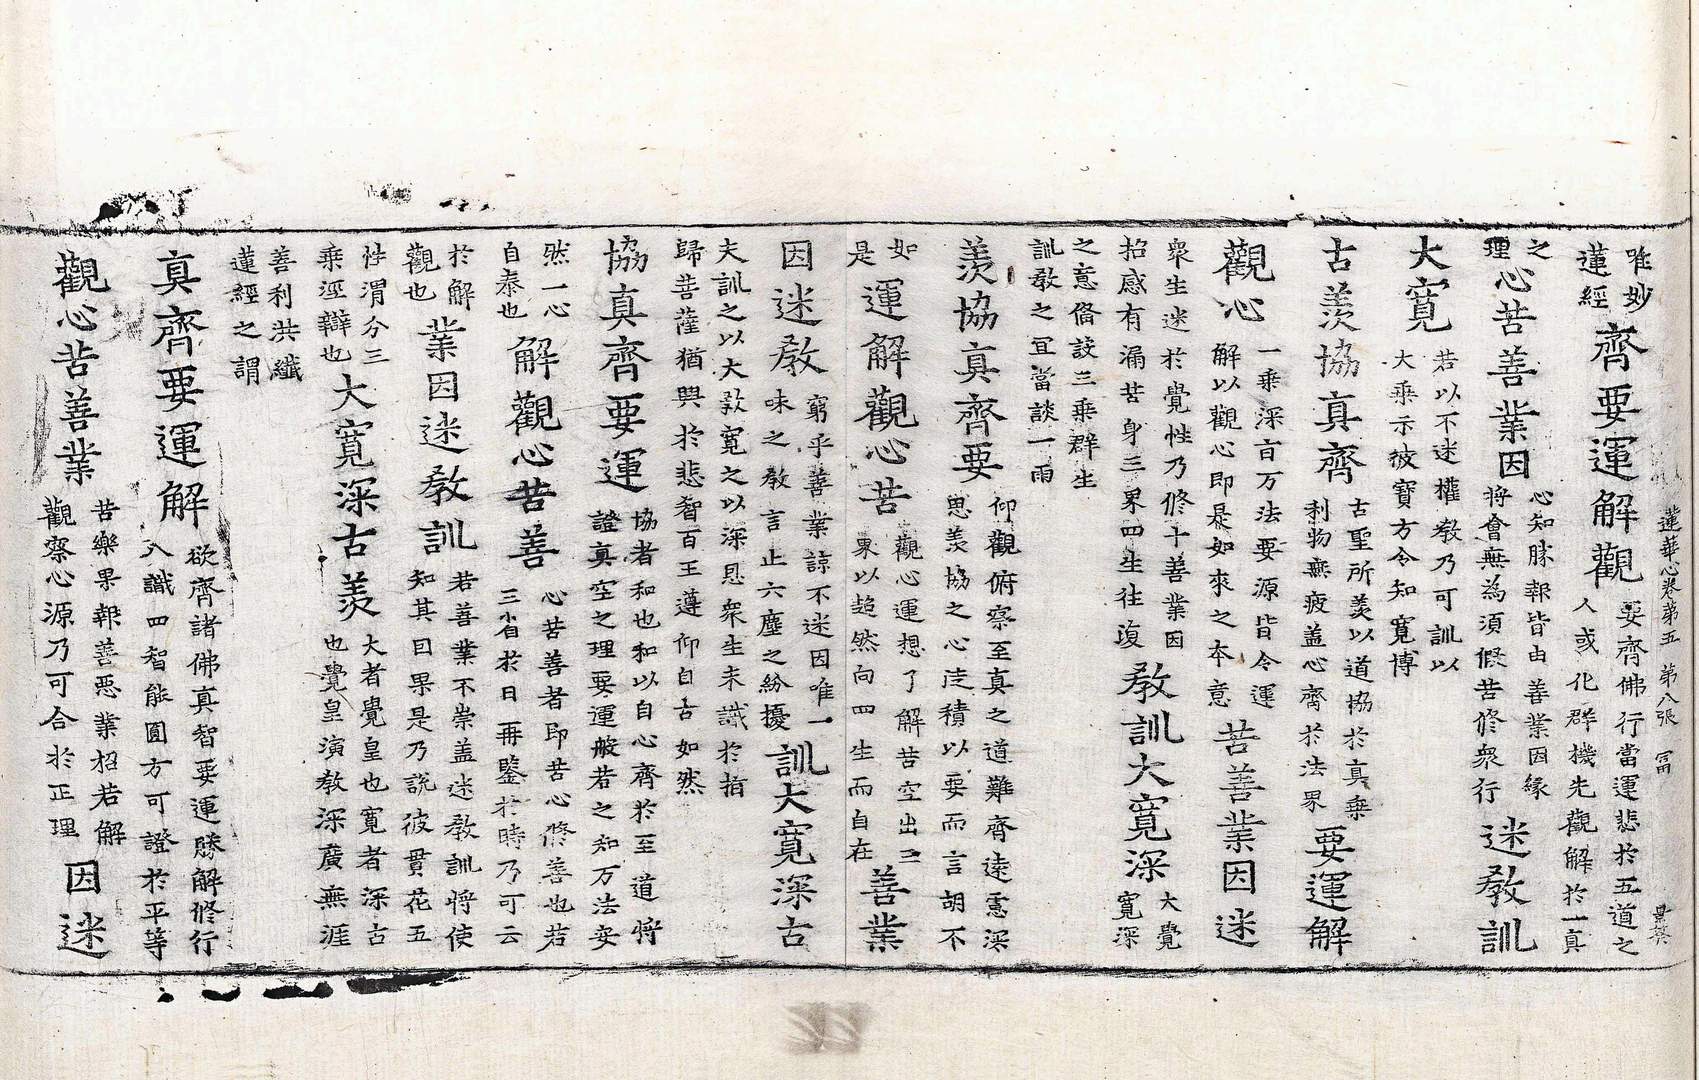 蓮華心卷第五 第八張 冨
唯妙
蓮經
齊要運解觀
要齊佛行當運悲於五道之
人或化群機先觀解於一真
之
理
心苦善業因
心知勝報皆由善業因緣
將會無為須假苦修眾行
迷教訓
大寬
若以不迷權教乃可訓以
大乘示彼寶方令知寬博
古羨協真齊
古聖所羨以道協於真乘
利物無疲盖心齊於法界
要運解
觀心
一乘深㫖万法要源皆令運
解以觀心即是如來之本意
苦善業因迷
眾生迷於覺性乃修十善業因
招感有漏苦身三界四生往復
教訓大寬深
大覺
寬深
之意俻設三乘群生
訓教之宜當談一雨
羨協真齊要
仰觀俯察至真之道難齊遠憲深
思羨協之心徒積以要而言胡不
如
是
運解觀心苦
觀心運想了解苦空出三
界以超然向四生而自在
善業
因迷教
窮乎善業諒不迷因唯一
味之教言止六塵之紛擾
訓大寬深古
夫訓之以大教寬之以深恩眾生未識於指
歸菩薩猶興於悲智百王遵仰自古如然
協真齊要運
協者和也和以自心齊於至道將
證真空之理要運般若之知万法安
然一心
自泰也
解觀心苦善
心苦善者即苦心修善也若
三省於日再鑒於時乃可云
於解
觀也
業因迷教訓
若善業不崇盖迷教訓將使
知其因果是乃說彼貫花五
性渭分三
乘涇辯也
大寬深古羨
大者覺皇也寬者深古
也覺皇演教深廣無涯
善利洪纖
蓮經之謂
真齊要運解
欲齊諸佛真智要運勝解修行
八識四智能圓方可證於平等
觀心苦善業
苦樂果報善惡業招若解
觀察心源乃可合於正理
因迷